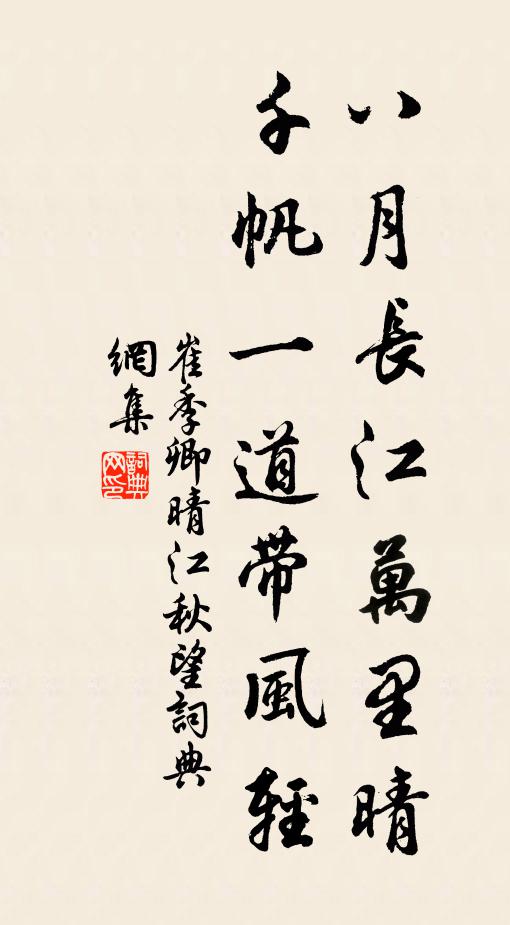 八月長江萬里晴
千帆一道带風輕
崔季卿晴江秋望詞典
網集
詞典
网印